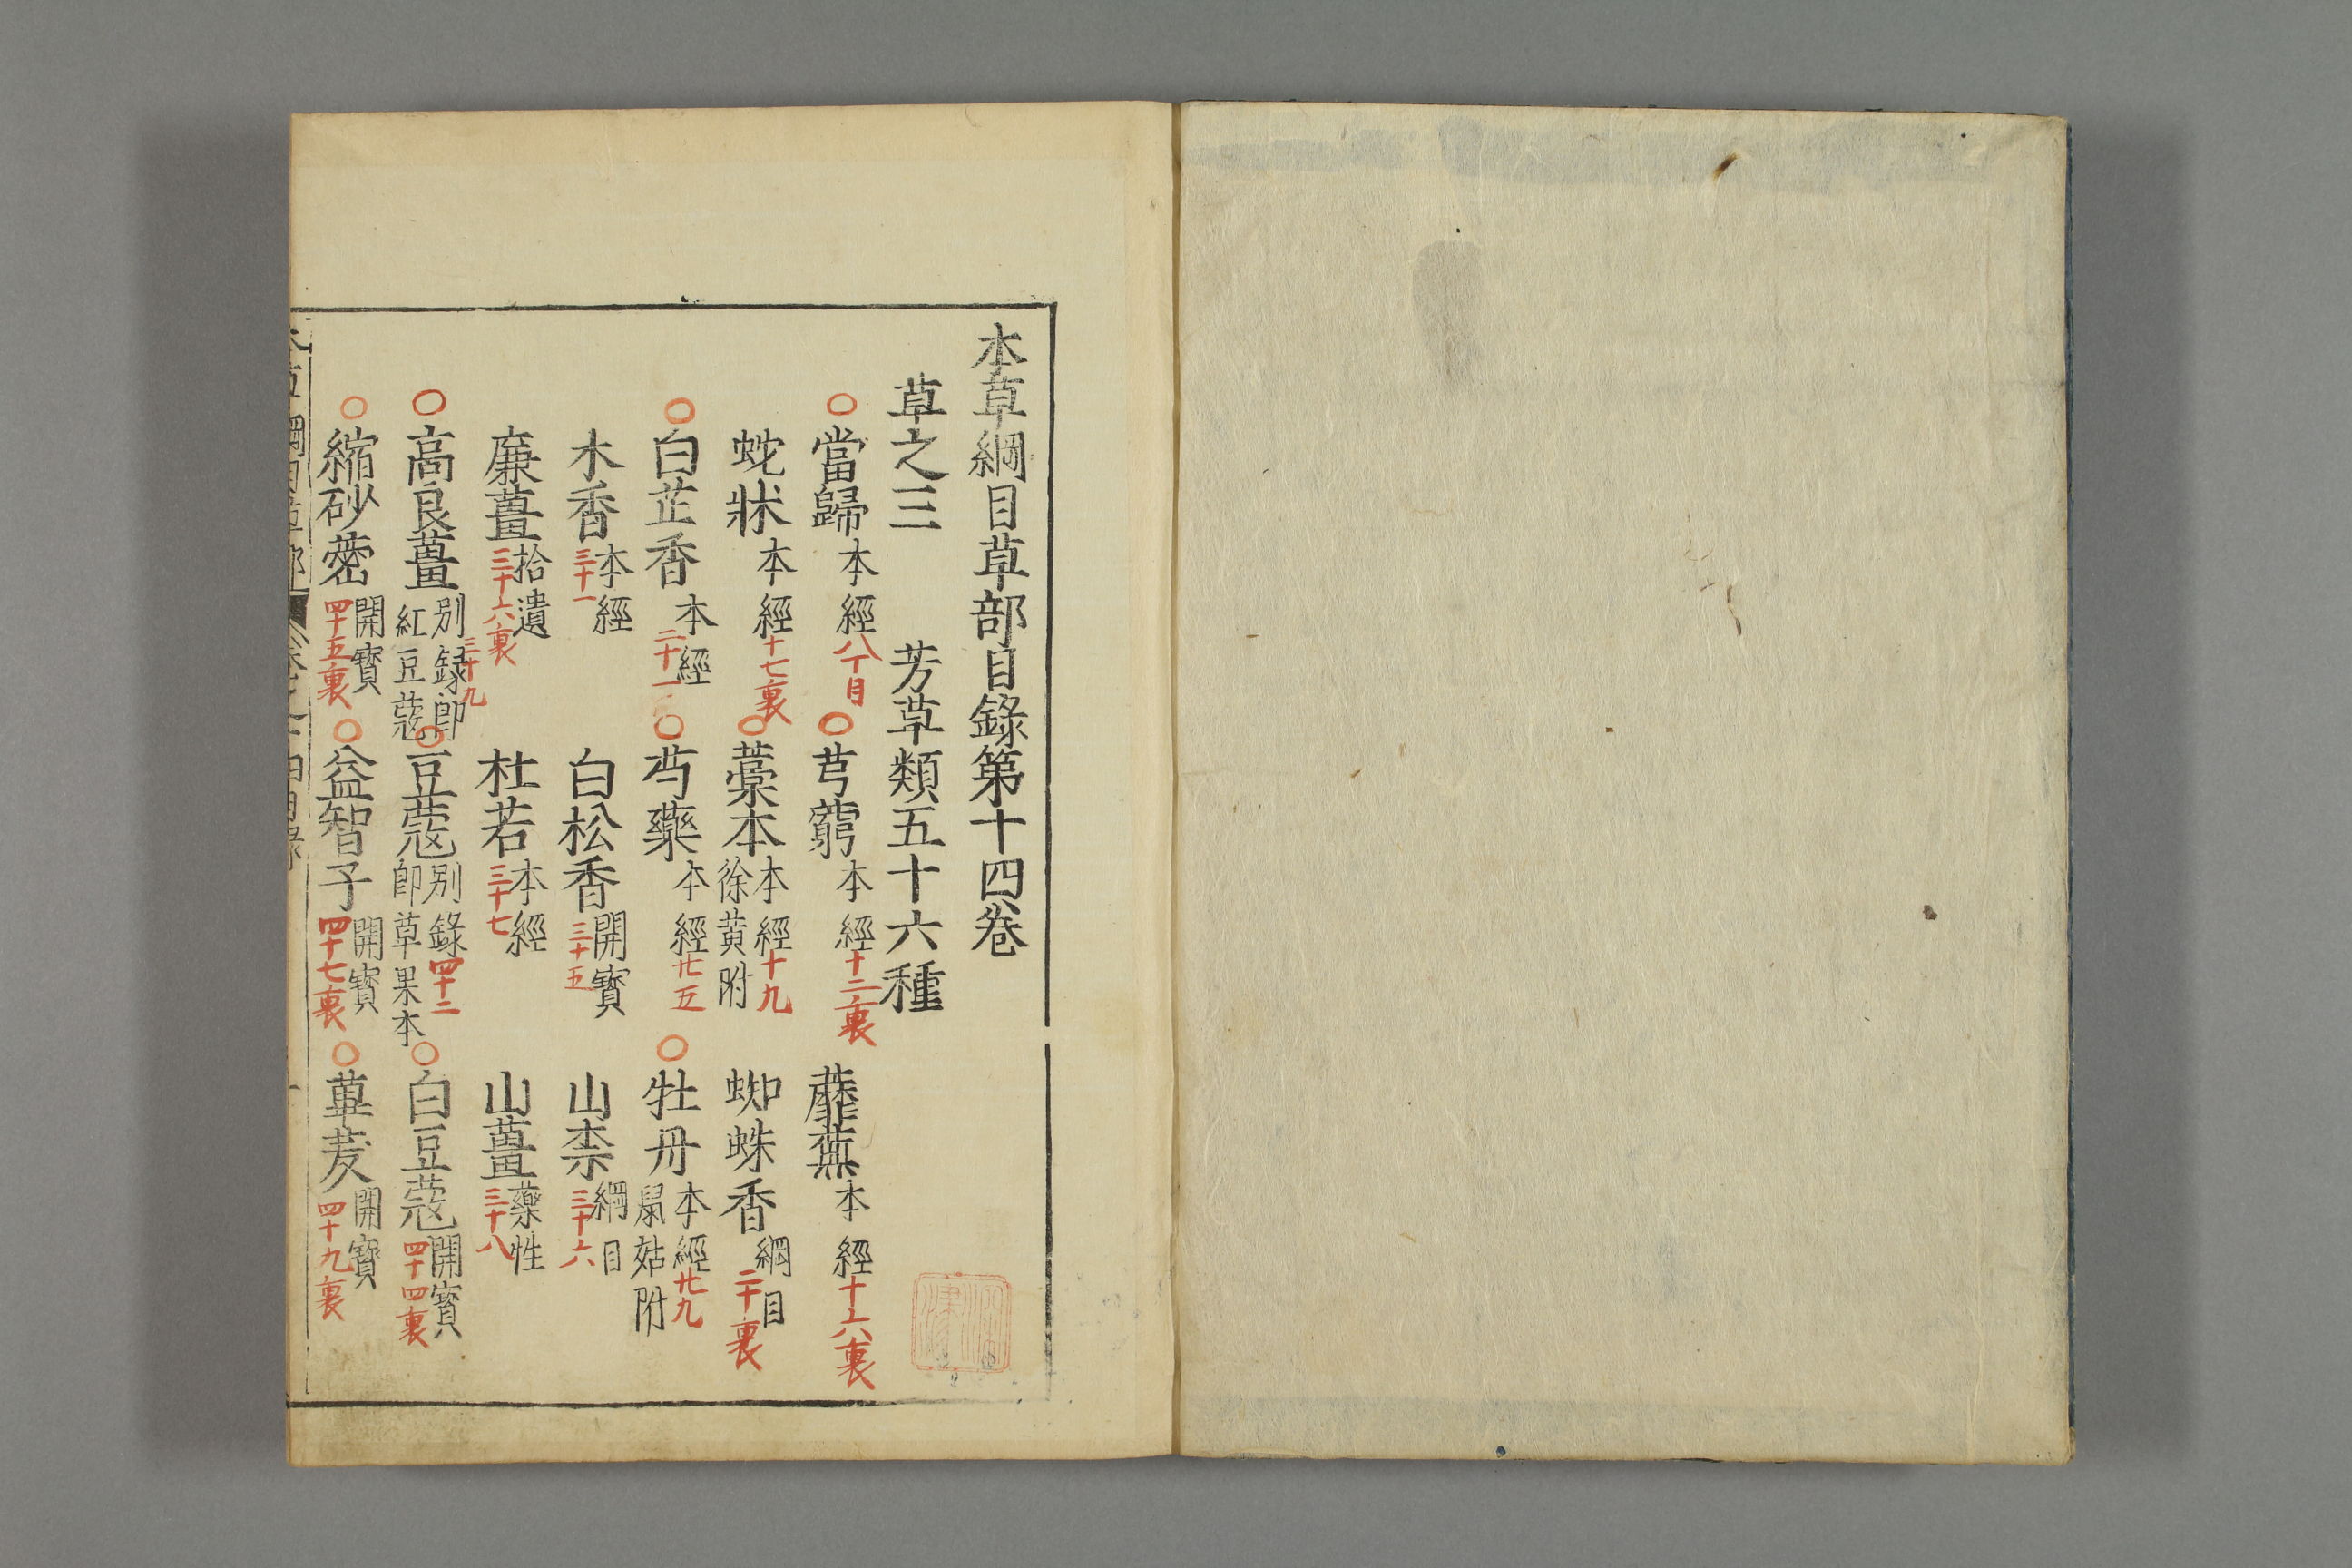 本草綱目草部目錄第十四卷
草之三　芳草類五十六種
○當歸 本經 八丁目 ○芎藭 本經 十二裏 蘼蕪 本經 十六裏
蛇牀 本經 十七裏 ○藁本 本經 徐黃附 十九 蜘蛛香 綱目 二十裏
○白芷香 本經 二十一 ○芍藥 本經 廿五 ○牡丹 本經 鼠姑附 廿九
木香 本經 三十一 白松香 開寶 三十五 山柰 綱目 三十六
廉薑 拾遺 三十六裏 杜若 本經 三十七 山薑 藥性 三十八
○高良薑 別錄即紅豆蔻 三十九 ○豆蔻 別錄即草果本 四十二 ○白豆蔻 開寶 四十四裏
○縮砂蔤 開寶 四十五裏 ○益智子 開寶 四十七裏 ○蓽茇 開寶 四十九裏